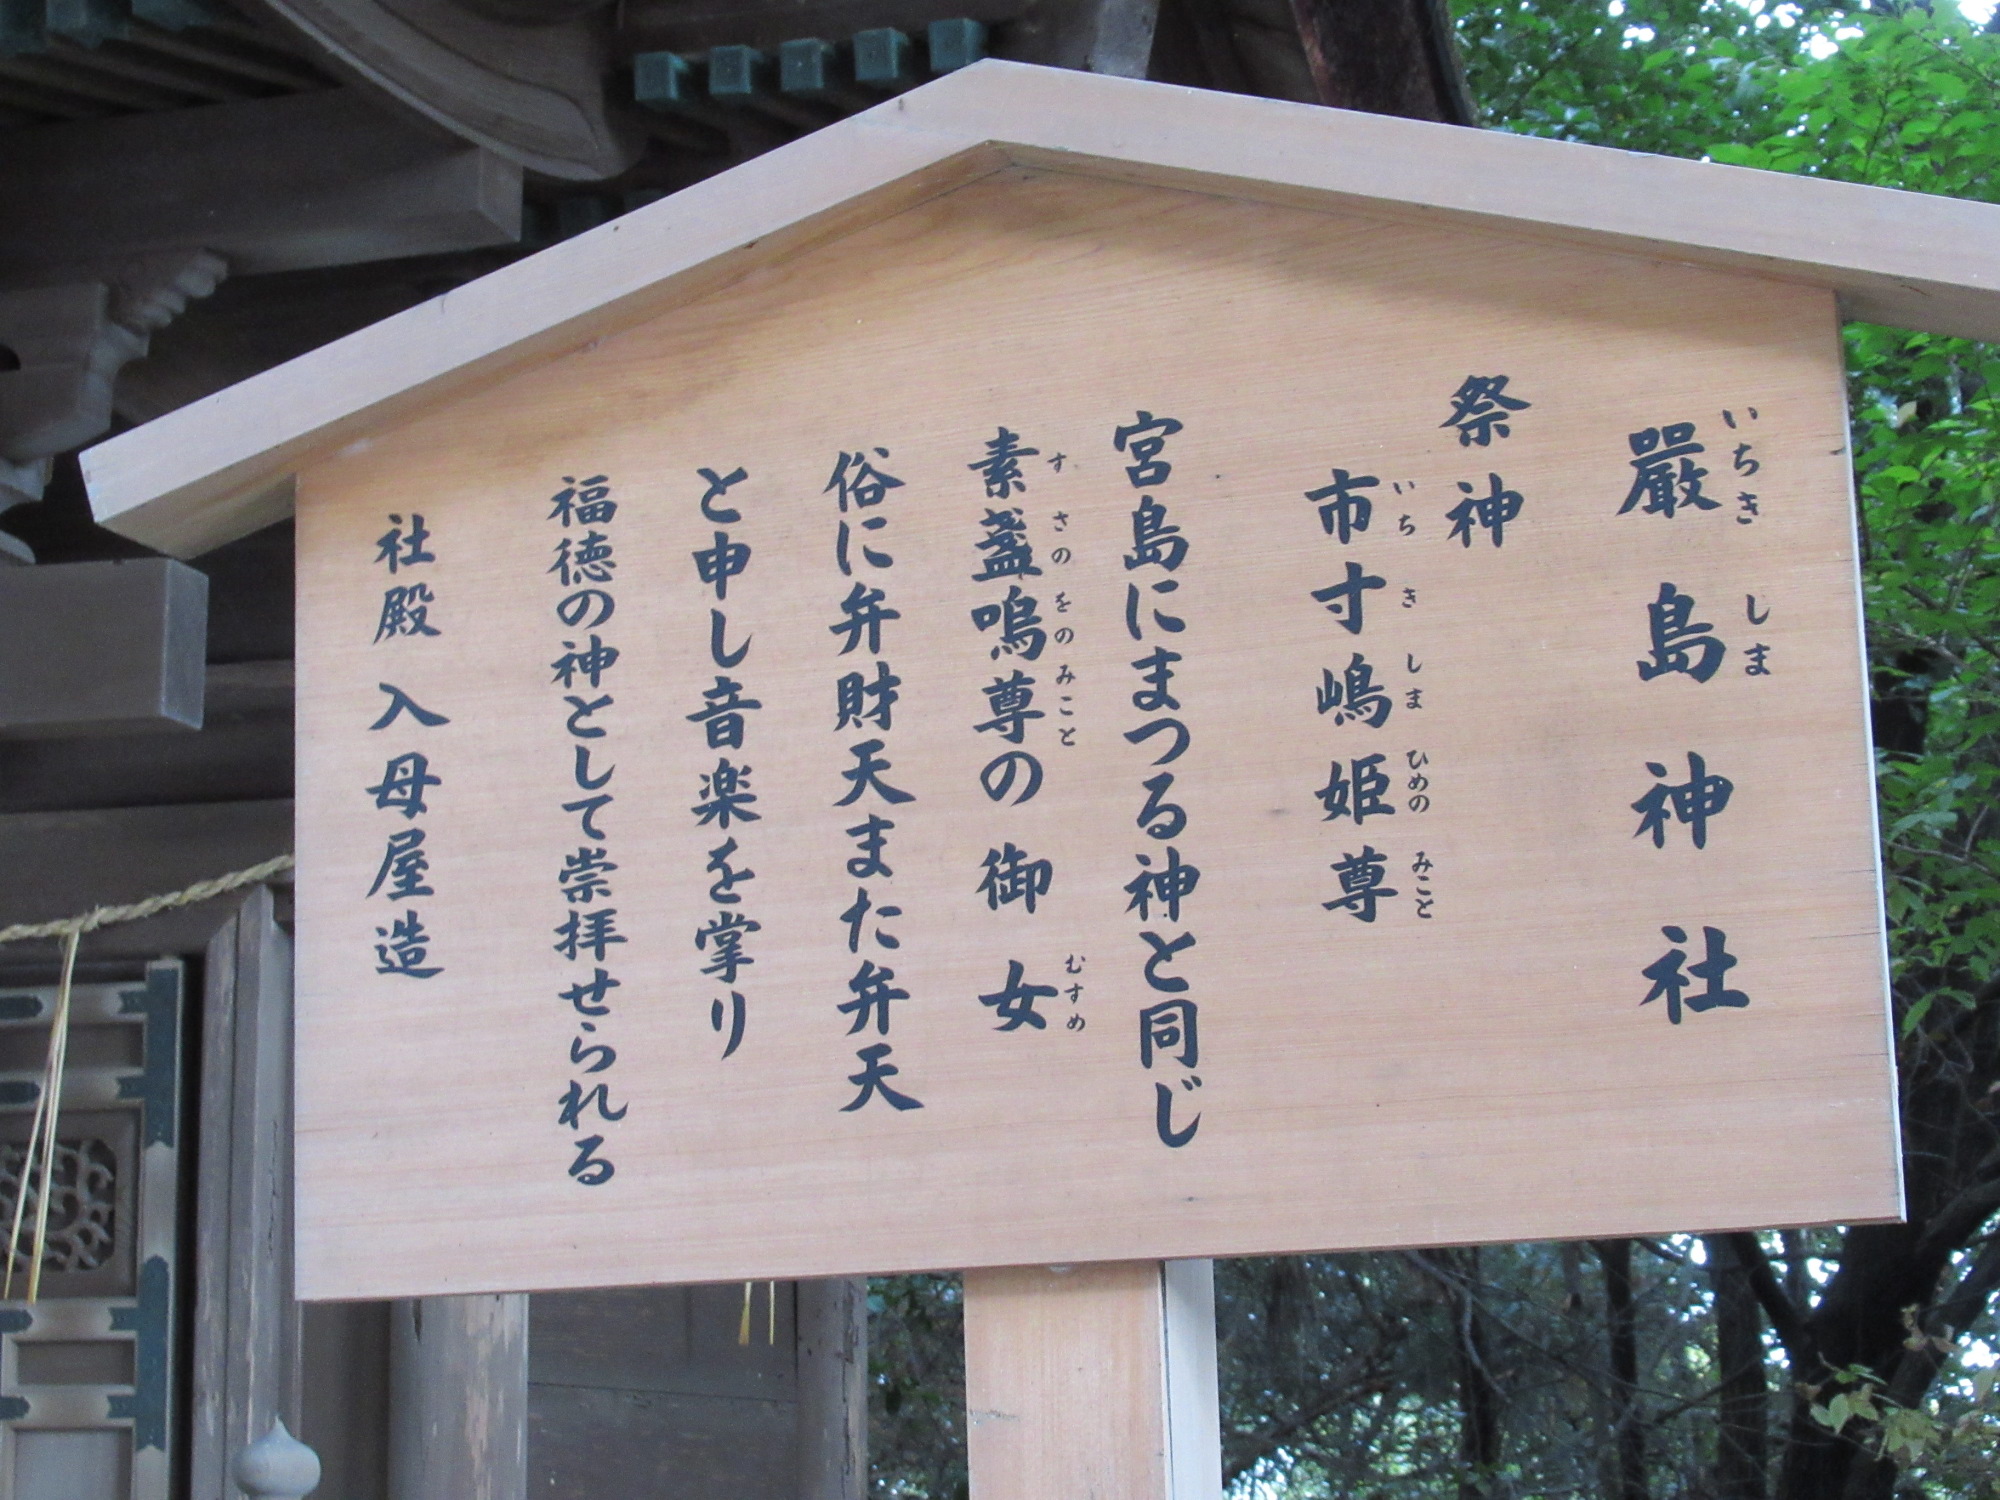 嚴島神社
いちきしま
祭神
市寸嶋姫尊
いちきしまひめのみこと
宮島にまつる神と同じ
素盞嗚尊の御女
すさのをのみこと むすめ
俗に弁財天また弁天
と申し音楽を掌り
福徳の神として崇拝せられる
社殿 入母屋造